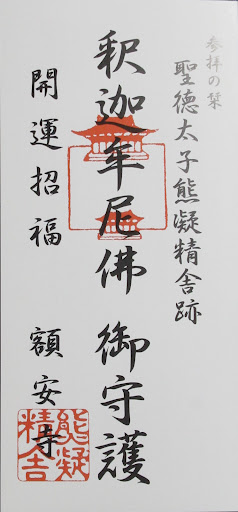 参拝の栞
聖德太子熊凝精舎跡
釈迦牟尼佛 御守護
開運招福 額安寺
熊凝
精舎